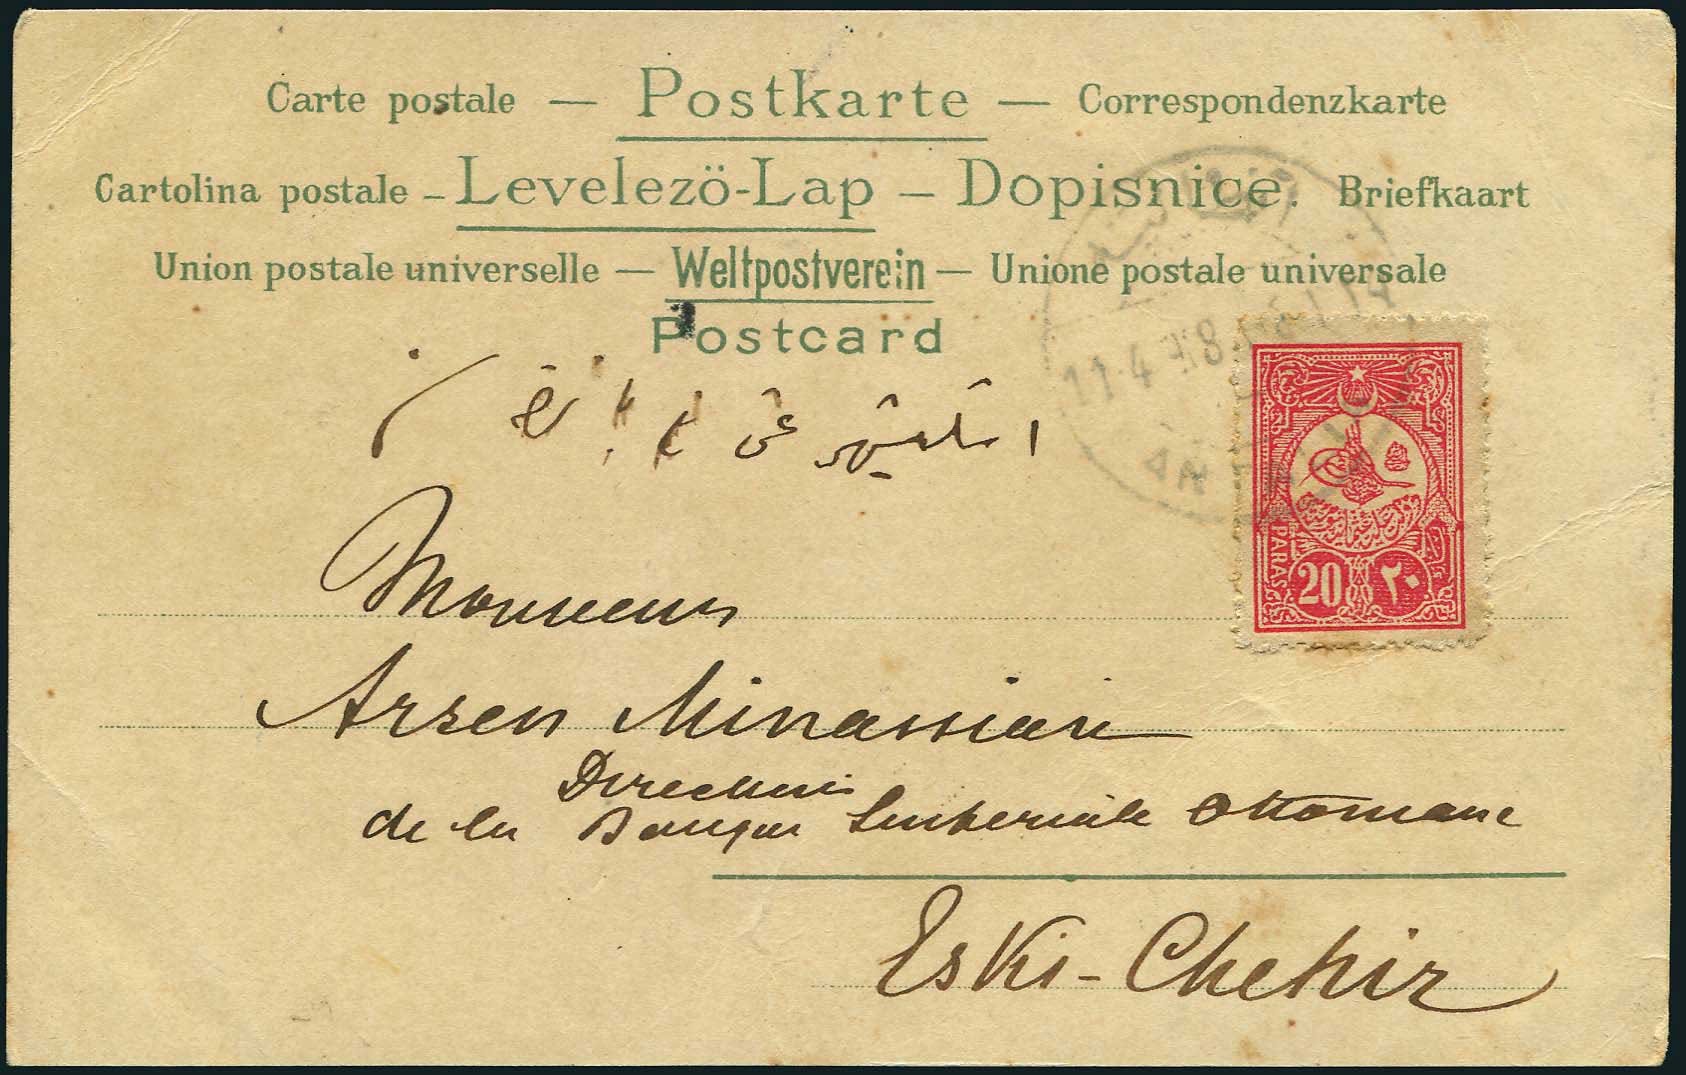 Carte postale — Postkarte — Correspondenzkarte
Cartolina postale – Levelezö-Lap – Dopisnice. Briefkaart
Union postale universelle — Weltpostverein — Unione postale universale
Postcard
11-4
PARAS
20 ٢٠
Monsieur
Arsen Minassian
Directeur
de la Banque Imberiale Ottomane
Eski-Chehir